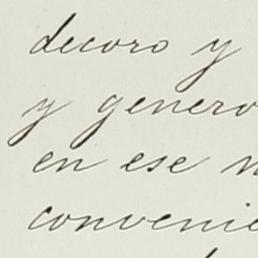 decoro y
y genero
en ese
convenie